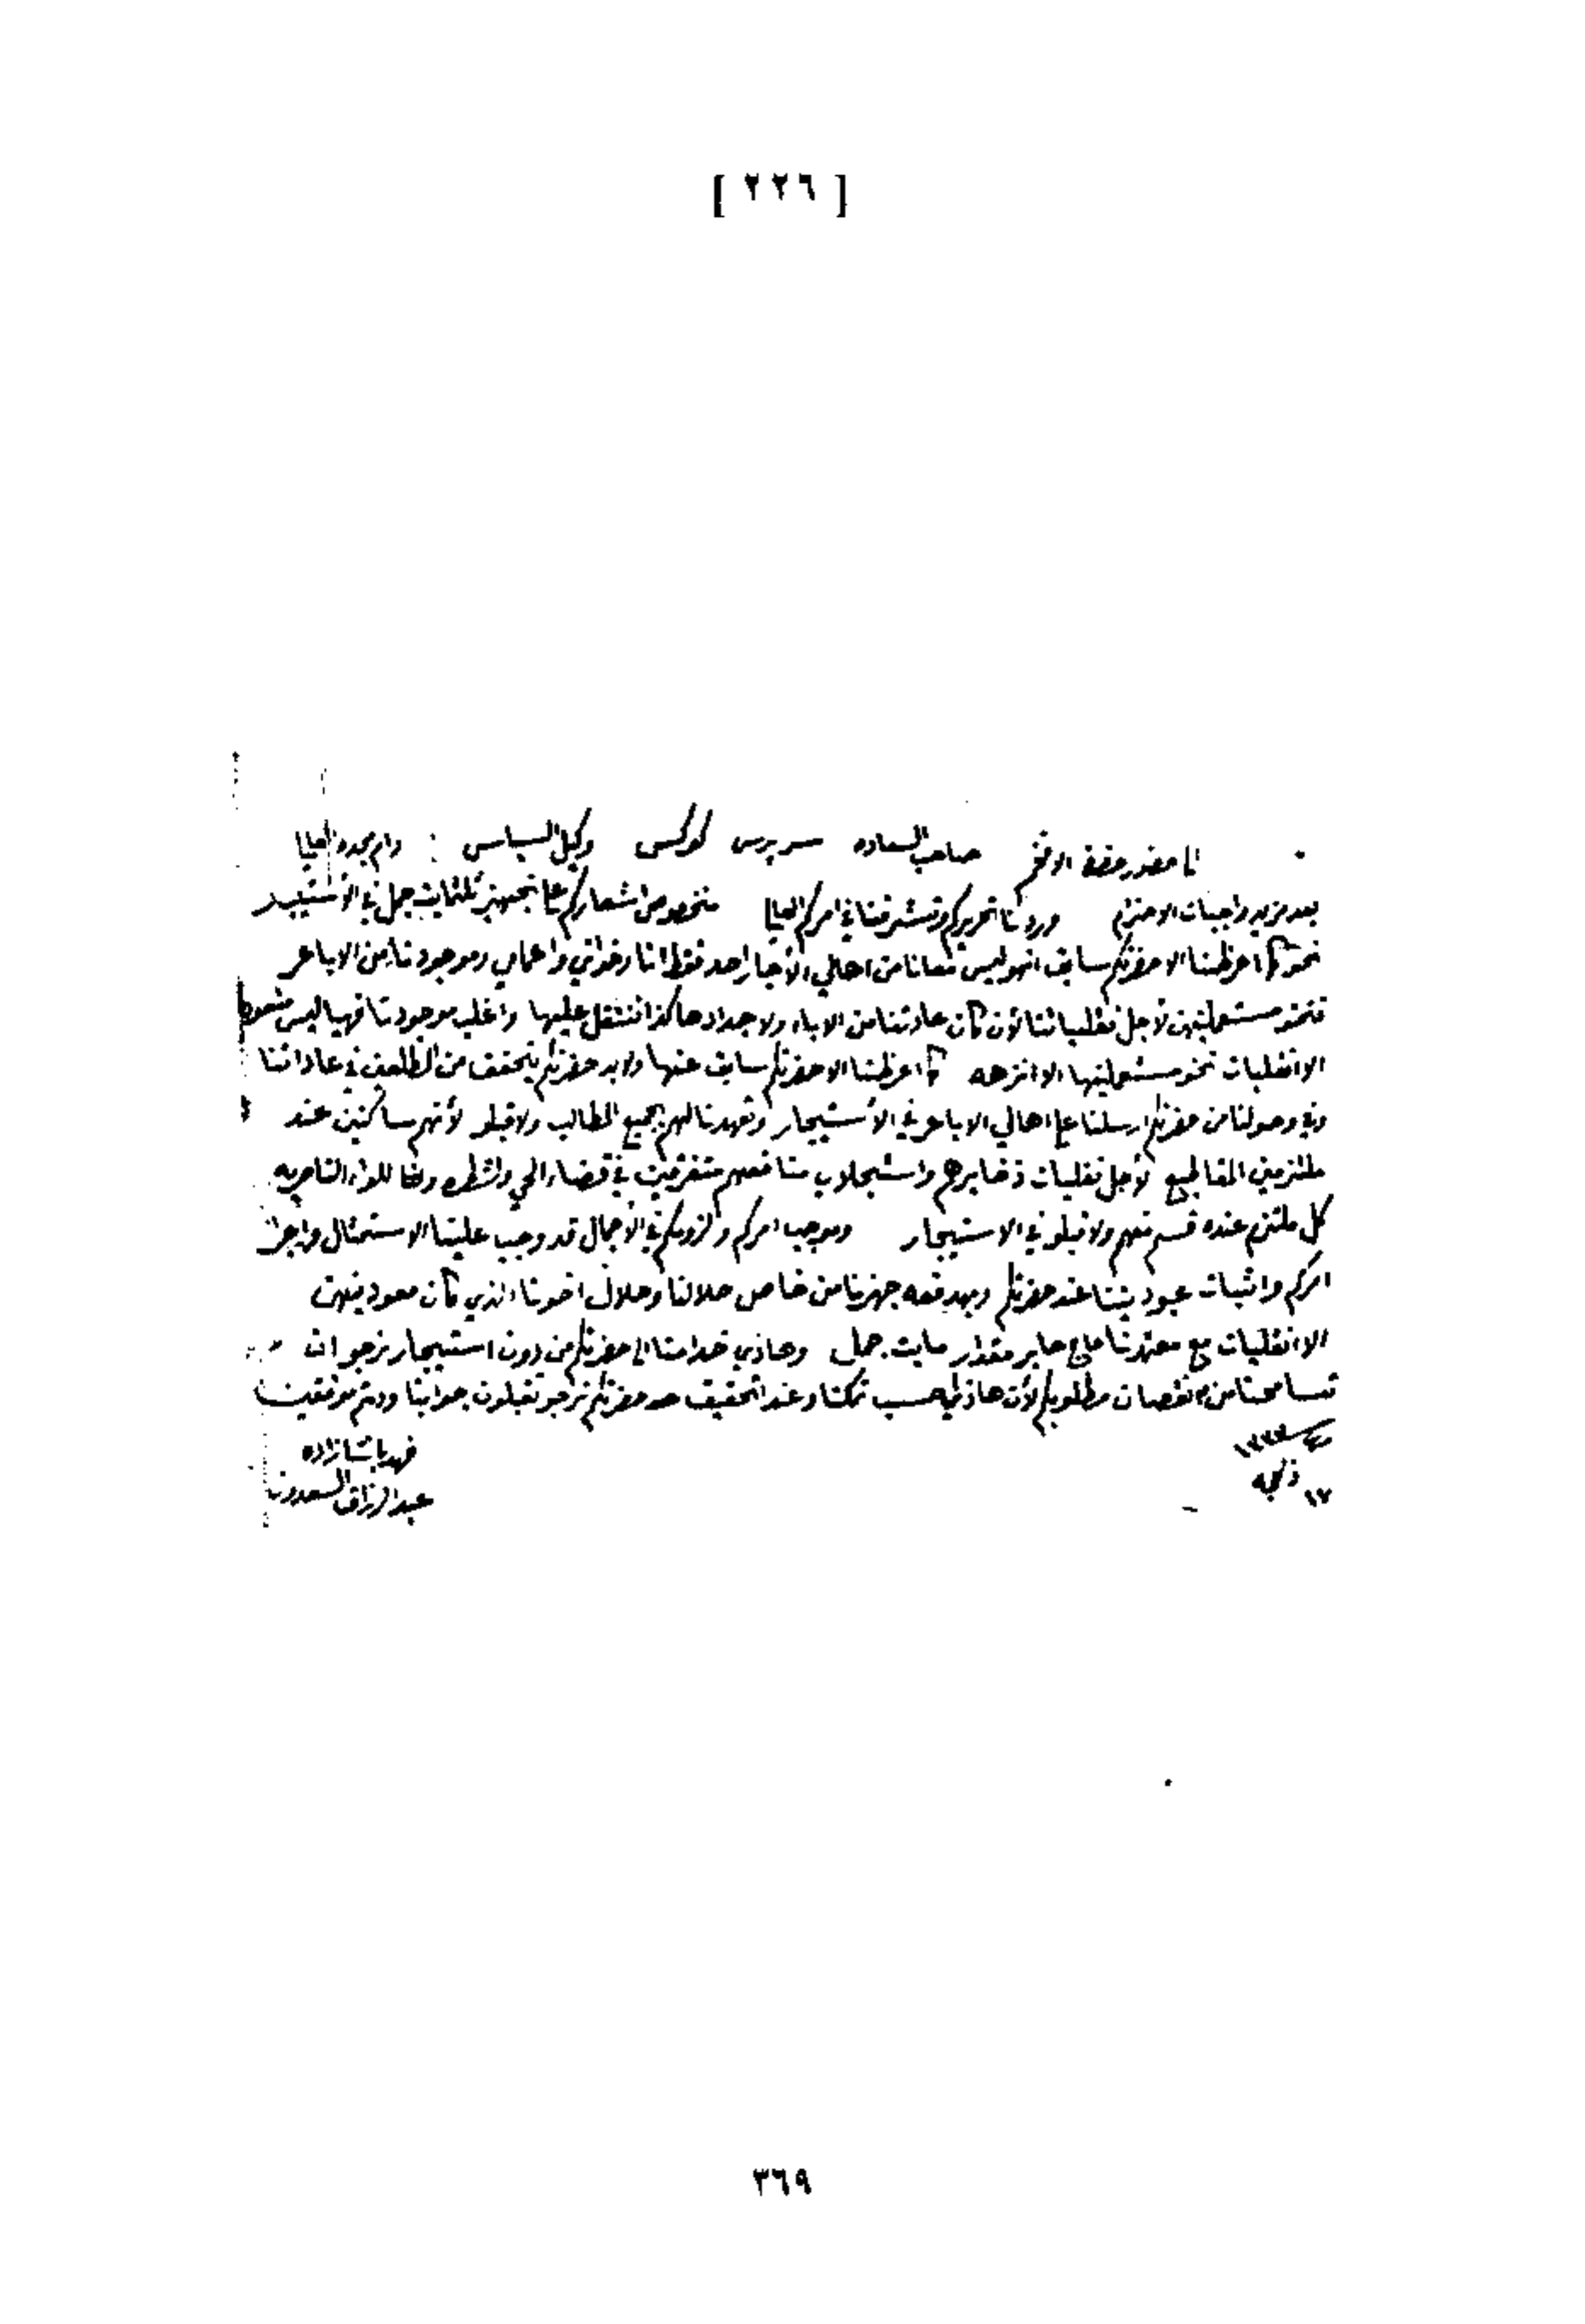 [ ٢٢٦ ]
الى حضور حضرة الافخم صاحب السعاده سر برسى كوكس وكيل السياسى : دام مجده العالي
بعد مزيد واجبات الاحترام وردنا تحريركم وتشرفنا في امركم العالي منخصوص اشعاركم على تجهيز ثلثمايت جمل في الأستيجار
نحو كما عرظنا الا حضرتكم سابق انهو ليس معانا من اهالي الأجار احد فقط انا وخواني واعمامي وموجودنا من الاباعر
فنحنو مستعملينهن لأجل نقلياتنا لأن كان عادتنا من الاباء ولاجداد هاكذا ننتقل عليها واغلب موجودتنا فهيا ليس
الانقليات نحنو مستعملينها الا انزحه كما عرظنا الا حضرتكم سابق عنها ولابد حضرتكم يتحقق من المطلعين في عاداتنا
وفي وصولنا من حضرتكم ارسلنا على اهالي الاباعر في الأستيجار وتعهدنا لهم بجميع المطالب ولا قبلو لأنهم ساكنين عند
ملتزمين المقاطيع لأجل نقليات ذخايرهم واستجلاب منافعهم متفرقين في قضاء الحي والشطره للواء الناصريه
كل ملتزم عنده قسم منهم ولا قبلو في الاستيجار وبموجب امركم ولزومكم في الأجمال قد وجب علينا الاستمثال واجراء
امركم واثبات عبوديتنا عند حضرتكم وبهدفعه جهزنا من خاص حلالنا وحلال اخوتنا الذي كان معود منهن
الانقليات مع معتمدنا حاج جابر مقدار مايت جمل وهاذي خدامتنا الى حضرتكم من دون استيجار نرجو ان
تسامحنا من نقصان مطلوبكم لأن هاذي حسب تمكنا وعند التحقيق حضرتكم نرجو تقبلون جوابنا ودمتم موفقين
سنة ١٣٣٣
١٧ ذلحجه
فهد باشا زاده
عبدالرزاق السعدون
٣٦٩